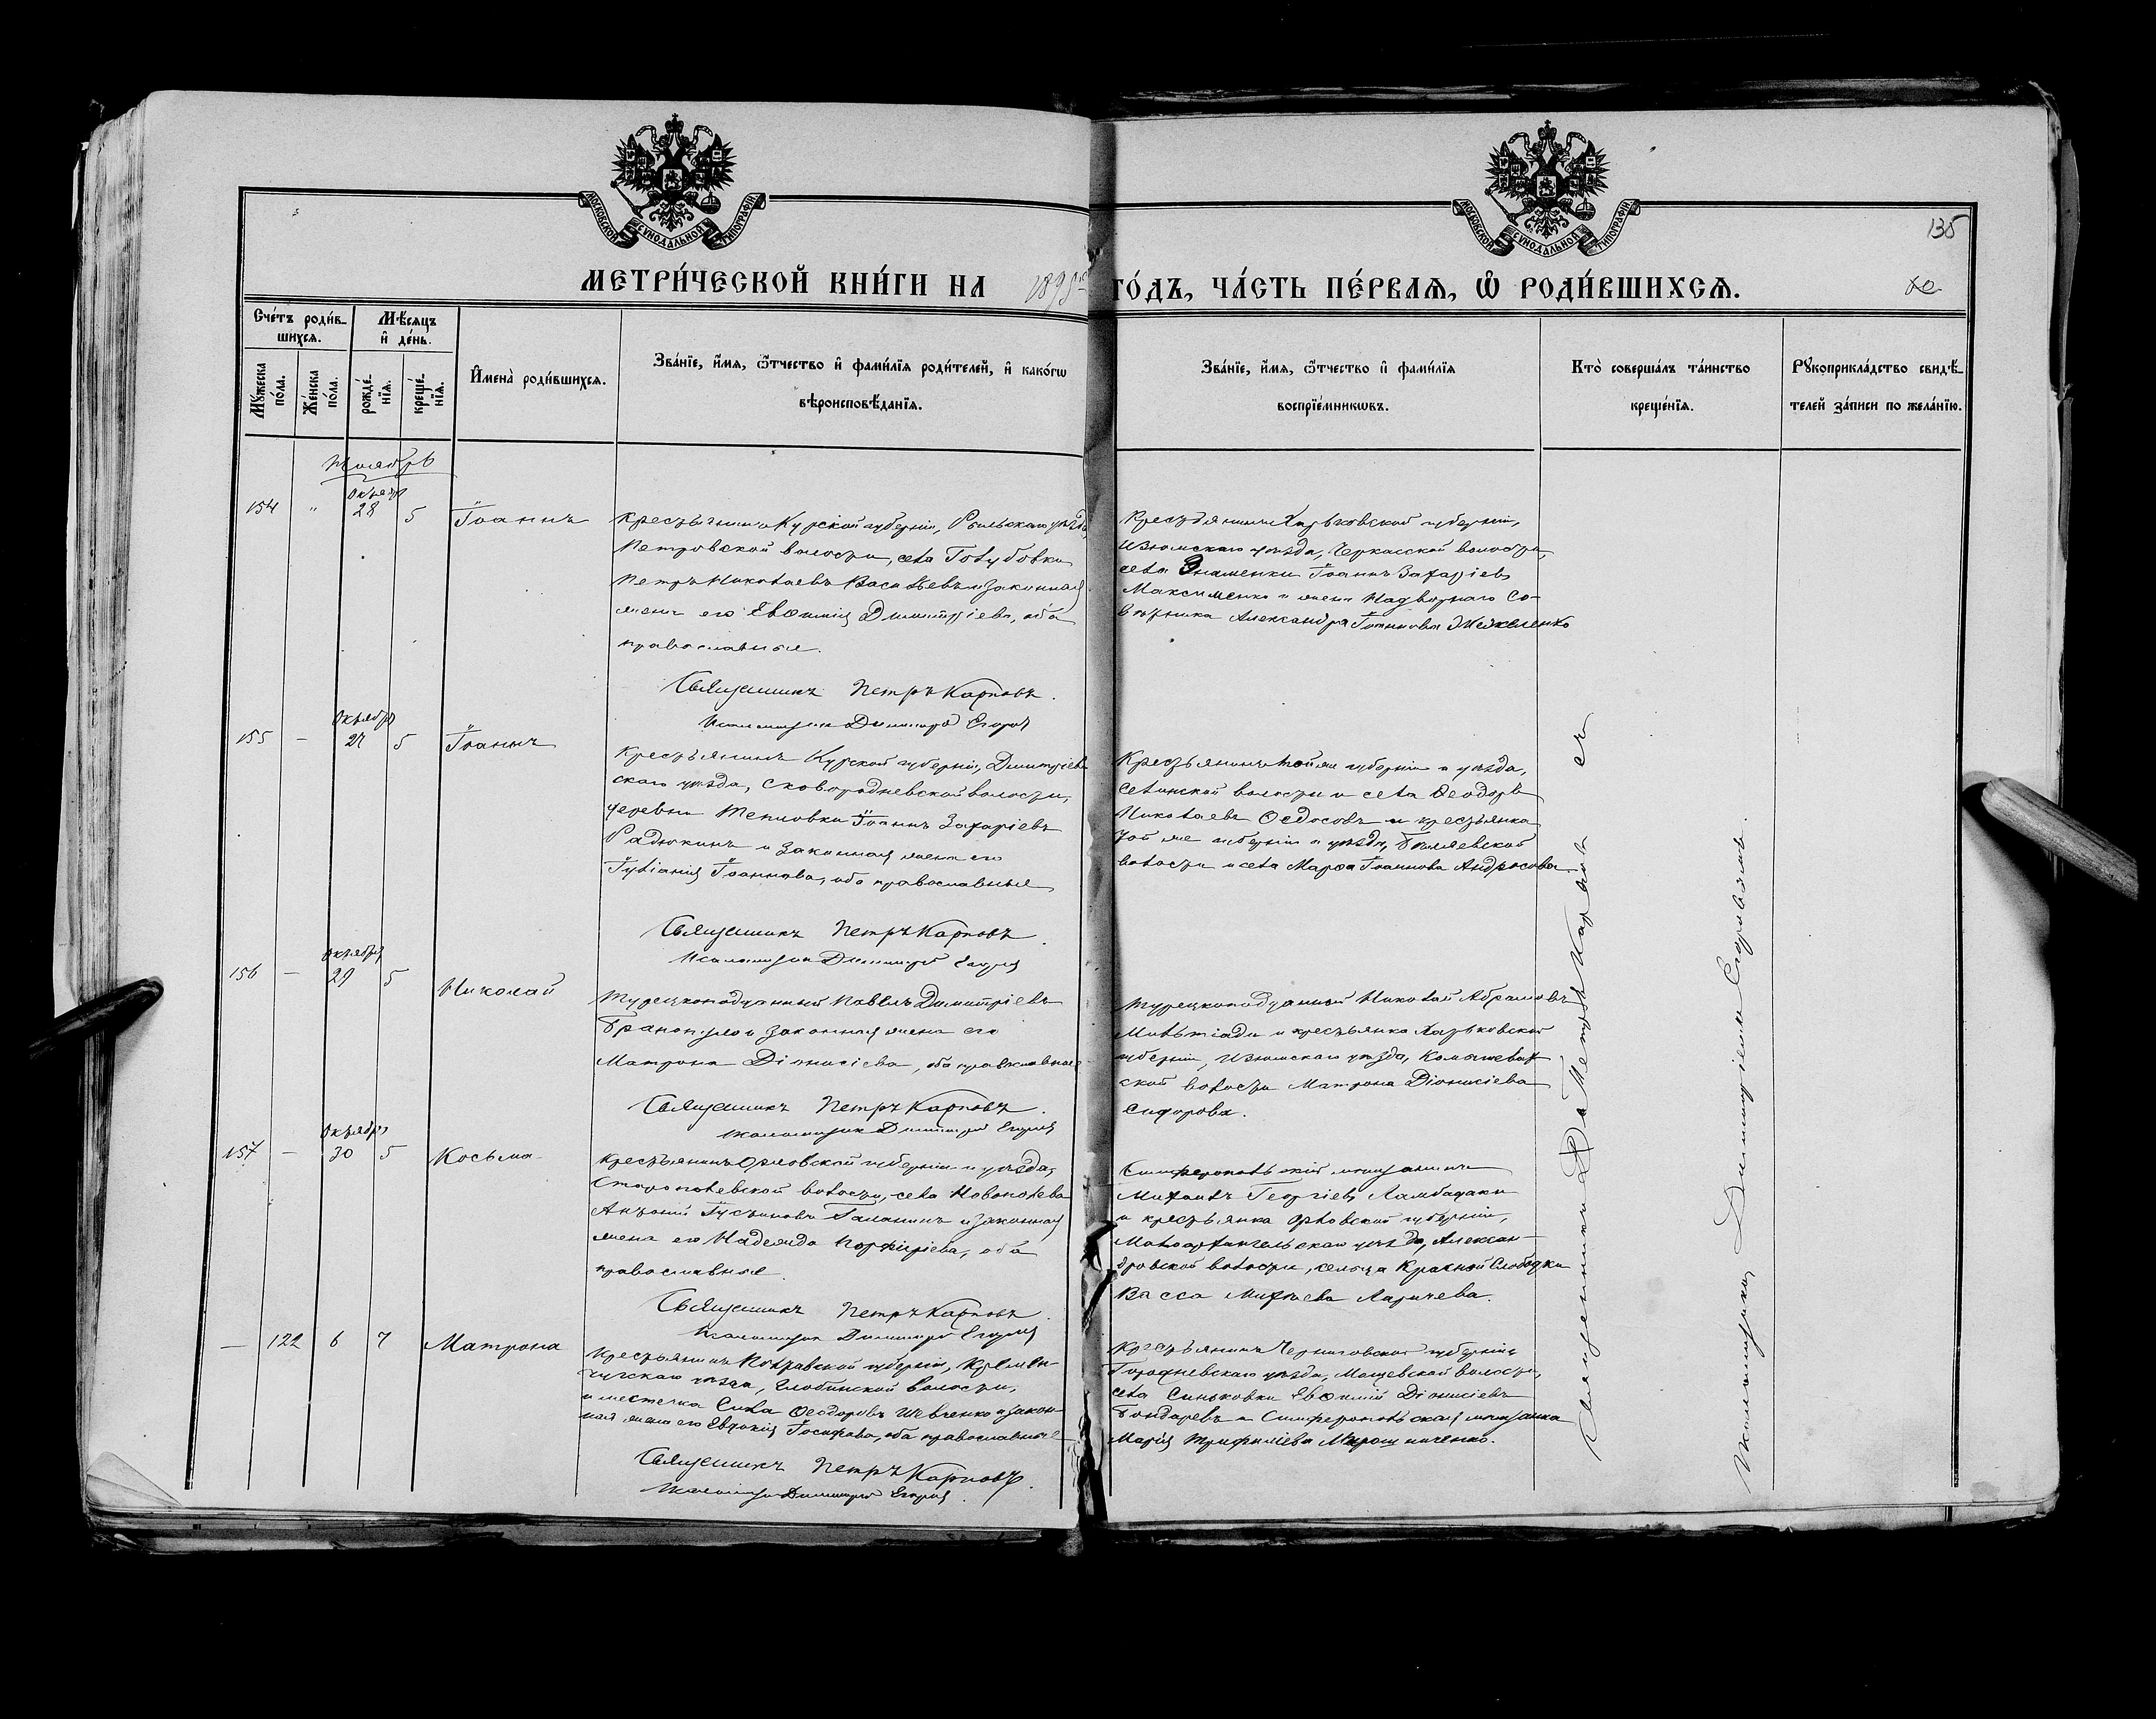 МОСКОВСКОЙ СѴНОДАЛЬНОЙ ТИПОГРАФІИ
МОСКОВСКОЙ СѴНОДАЛЬНОЙ ТИПОГРАФІИ
135
МЕТРИ́ЧЕСКОЙ КНИ́ГИ НА 1895 ГО́ДЪ, ЧА́СТЬ ПЕ́РВАѦ, Ѡ҆ РОДИ́ВШИХСѦ.
Сче́тъ роди́в-
шихсѧ.
Мѣ́сѧцъ
и҆ де́нь.
И҆мена̀ роди́вшихсѧ.
Зва́нїе, и҆́мѧ, ѻ҆́тчество и҆ фами́лїѧ роди́телей, и҆ како́гѡ
вѣроисповѣ́данїѧ.
Мꙋ́жеска
по́ла.
Же́нска
по́ла.
рожде́-
нїѧ.
креще́-
нїѧ.
Зва́нїе, и҆́мѧ, ѻ҆́тчество и҆ фами́лїѧ
воспрїе́мникѡвъ.
Кто̀ соверша́лъ та́инство
креще́нїѧ.
Рꙋкоприкла́дство свидѣ́-
телей за́писи по жела́нїю.
Ноябрь
154 " Октября 28 5 Іоаннъ
Крестьянинъ Курской губерніи, Рыльскаго уѣзда,
Петровской волости, села Голубовки
Петръ Николаевъ Васильевъ и законная
жена его Евѳимія Димитріева, оба
православные.
Священникъ Петръ Карповъ.
Псаломщикъ Димитрій Егоровъ
Крестьянинъ Харьковской губерніи,
Изюмскаго уѣзда, Черкасской волости,
села Знаменки Іоаннъ Захаріевъ
Максименко и жена Надворнаго Со-
вѣтника Александра Іоаннова
155 — Октября 27 5 Іоаннъ
Крестьянинъ Курской губерніи, Димитріев-
скаго уѣзда, Сковородневской волости,
деревни Тепловки Іоаннъ Захаріевъ
Радюкинъ и законная жена его
Іуліанія Іоаннова, оба православные
Священникъ Петръ Карповъ.
Псаломщикъ Димитрій Егоровъ
Крестьянинъ той же губерніи и уѣзда,
волости и села Ѳеодоръ
Николаевъ Ѳедосовъ и крестьянка
той же губерніи и уѣзда, Бѣляевской
волости и села Марѳа Іоаннова Андросова
156 — Октября 29 5 Николай
Турецкоподданный Павелъ Димитріевъ
и законная жена его
Матрона Діонисіева, оба православные
Священникъ Петръ Карповъ.
Псаломщикъ Димитрій Егоровъ
Турецкоподданный Николай Абрамовъ
Мильтіади и крестьянка Харьковской
губерніи, Изюмскаго уѣзда, Камышеват-
ской волости Матрона Діонисіева
Сидорова.
157 — Октября 30 5 Косьма
Крестьянинъ Орловской губерніи и уѣзда,
волости, села
Антоній Іустиновъ Галанинъ и законная
жена его Надежда Порфиріева, оба
православные.
Священникъ Петръ Карповъ.
Псаломщикъ Димитрій Егоровъ
Симферопольскій мѣщанинъ
Михаилъ Георгіевъ Ламбадаки
и крестьянка Орловской губерніи,
Малоархангельскаго уѣзда, Александ-
ровской волости, сельца Красной Слободки
Васса Михаева Ларичева.
— 122 6 7 Матрона
Крестьянинъ Полтавской губерніи, Кремен-
чугскаго уѣзда, Глобинской волости,
и местечка Сила Ѳеодоровъ Шевченко и закон-
ная жена его Евдокія Іосифова, оба православные
Священникъ Петръ Карповъ.
Псаломщикъ Димитрій Егоровъ.
Крестьянинъ Черниговской губерніи,
Городневскаго уѣзда, волости,
села Синьковки Евѳимій Діонисіевъ
Бондаревъ и Симферопольская мѣщанка
Марія Трифиліева Мирошниченко.
Священникъ Петръ Карповъ съ
Псаломщикомъ Димитріемъ Егоровымъ.